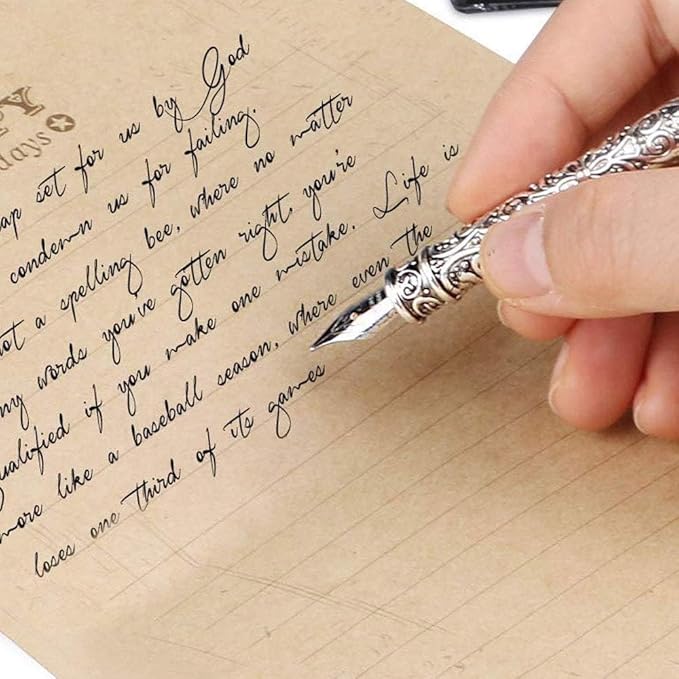 PY
days
ap set for us by God
condemn us for failing.
ot a spelling bee, where no matter
ny words you've gotten right, you're
ualified if you make one mistake. Life is
more like a baseball season, where even the
loses one third of its games